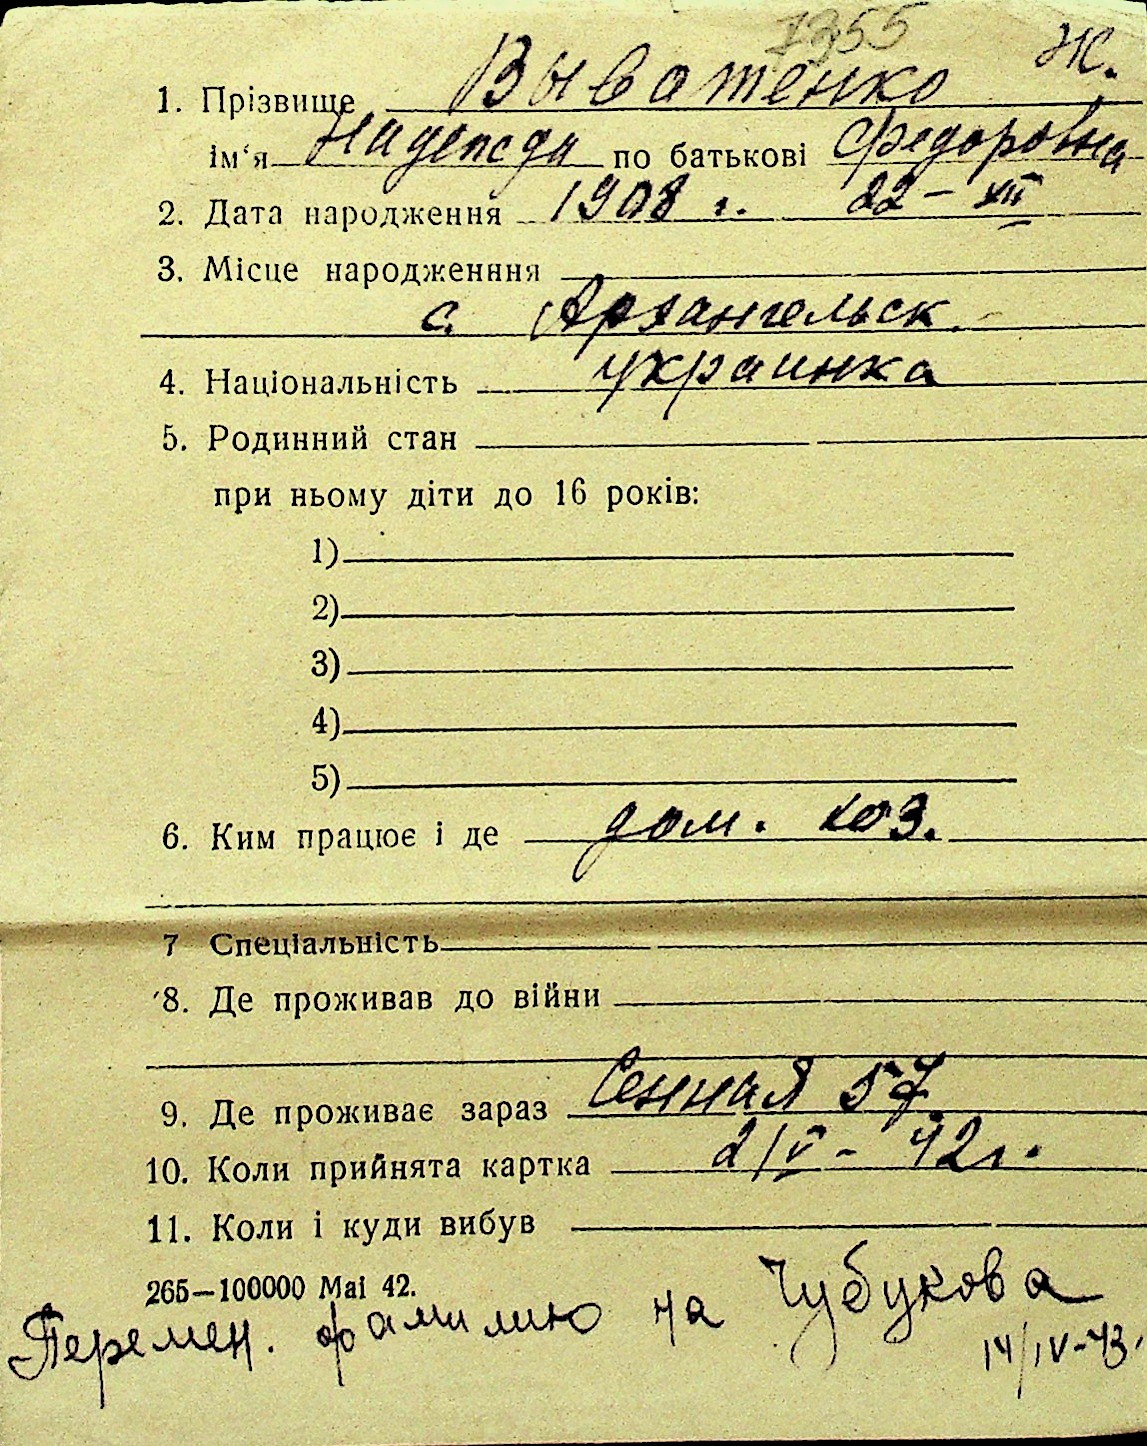 7355 Ж.
1. Прізвище Выватенко
ім‘я Надежда по батькові Федоровна
2. Дата народження 1908 г. 22 – XII
3. Місце народженння
с. Архангельск
4. Національність украинка
5. Родинний стан
при ньому діти до 16 років:
1)
2)
3)
4)
5)
6. Ким працює і де дом. хоз.
7 Спеціальність
8. Де проживав до війни
9. Де проживає зараз Сенная 57
10. Коли прийнята картка 2/V - 42 г.
11. Коли і куди вибув
265—100000 Маі 42.
Перемен. фамилию на Чубукова
14/IV-43.